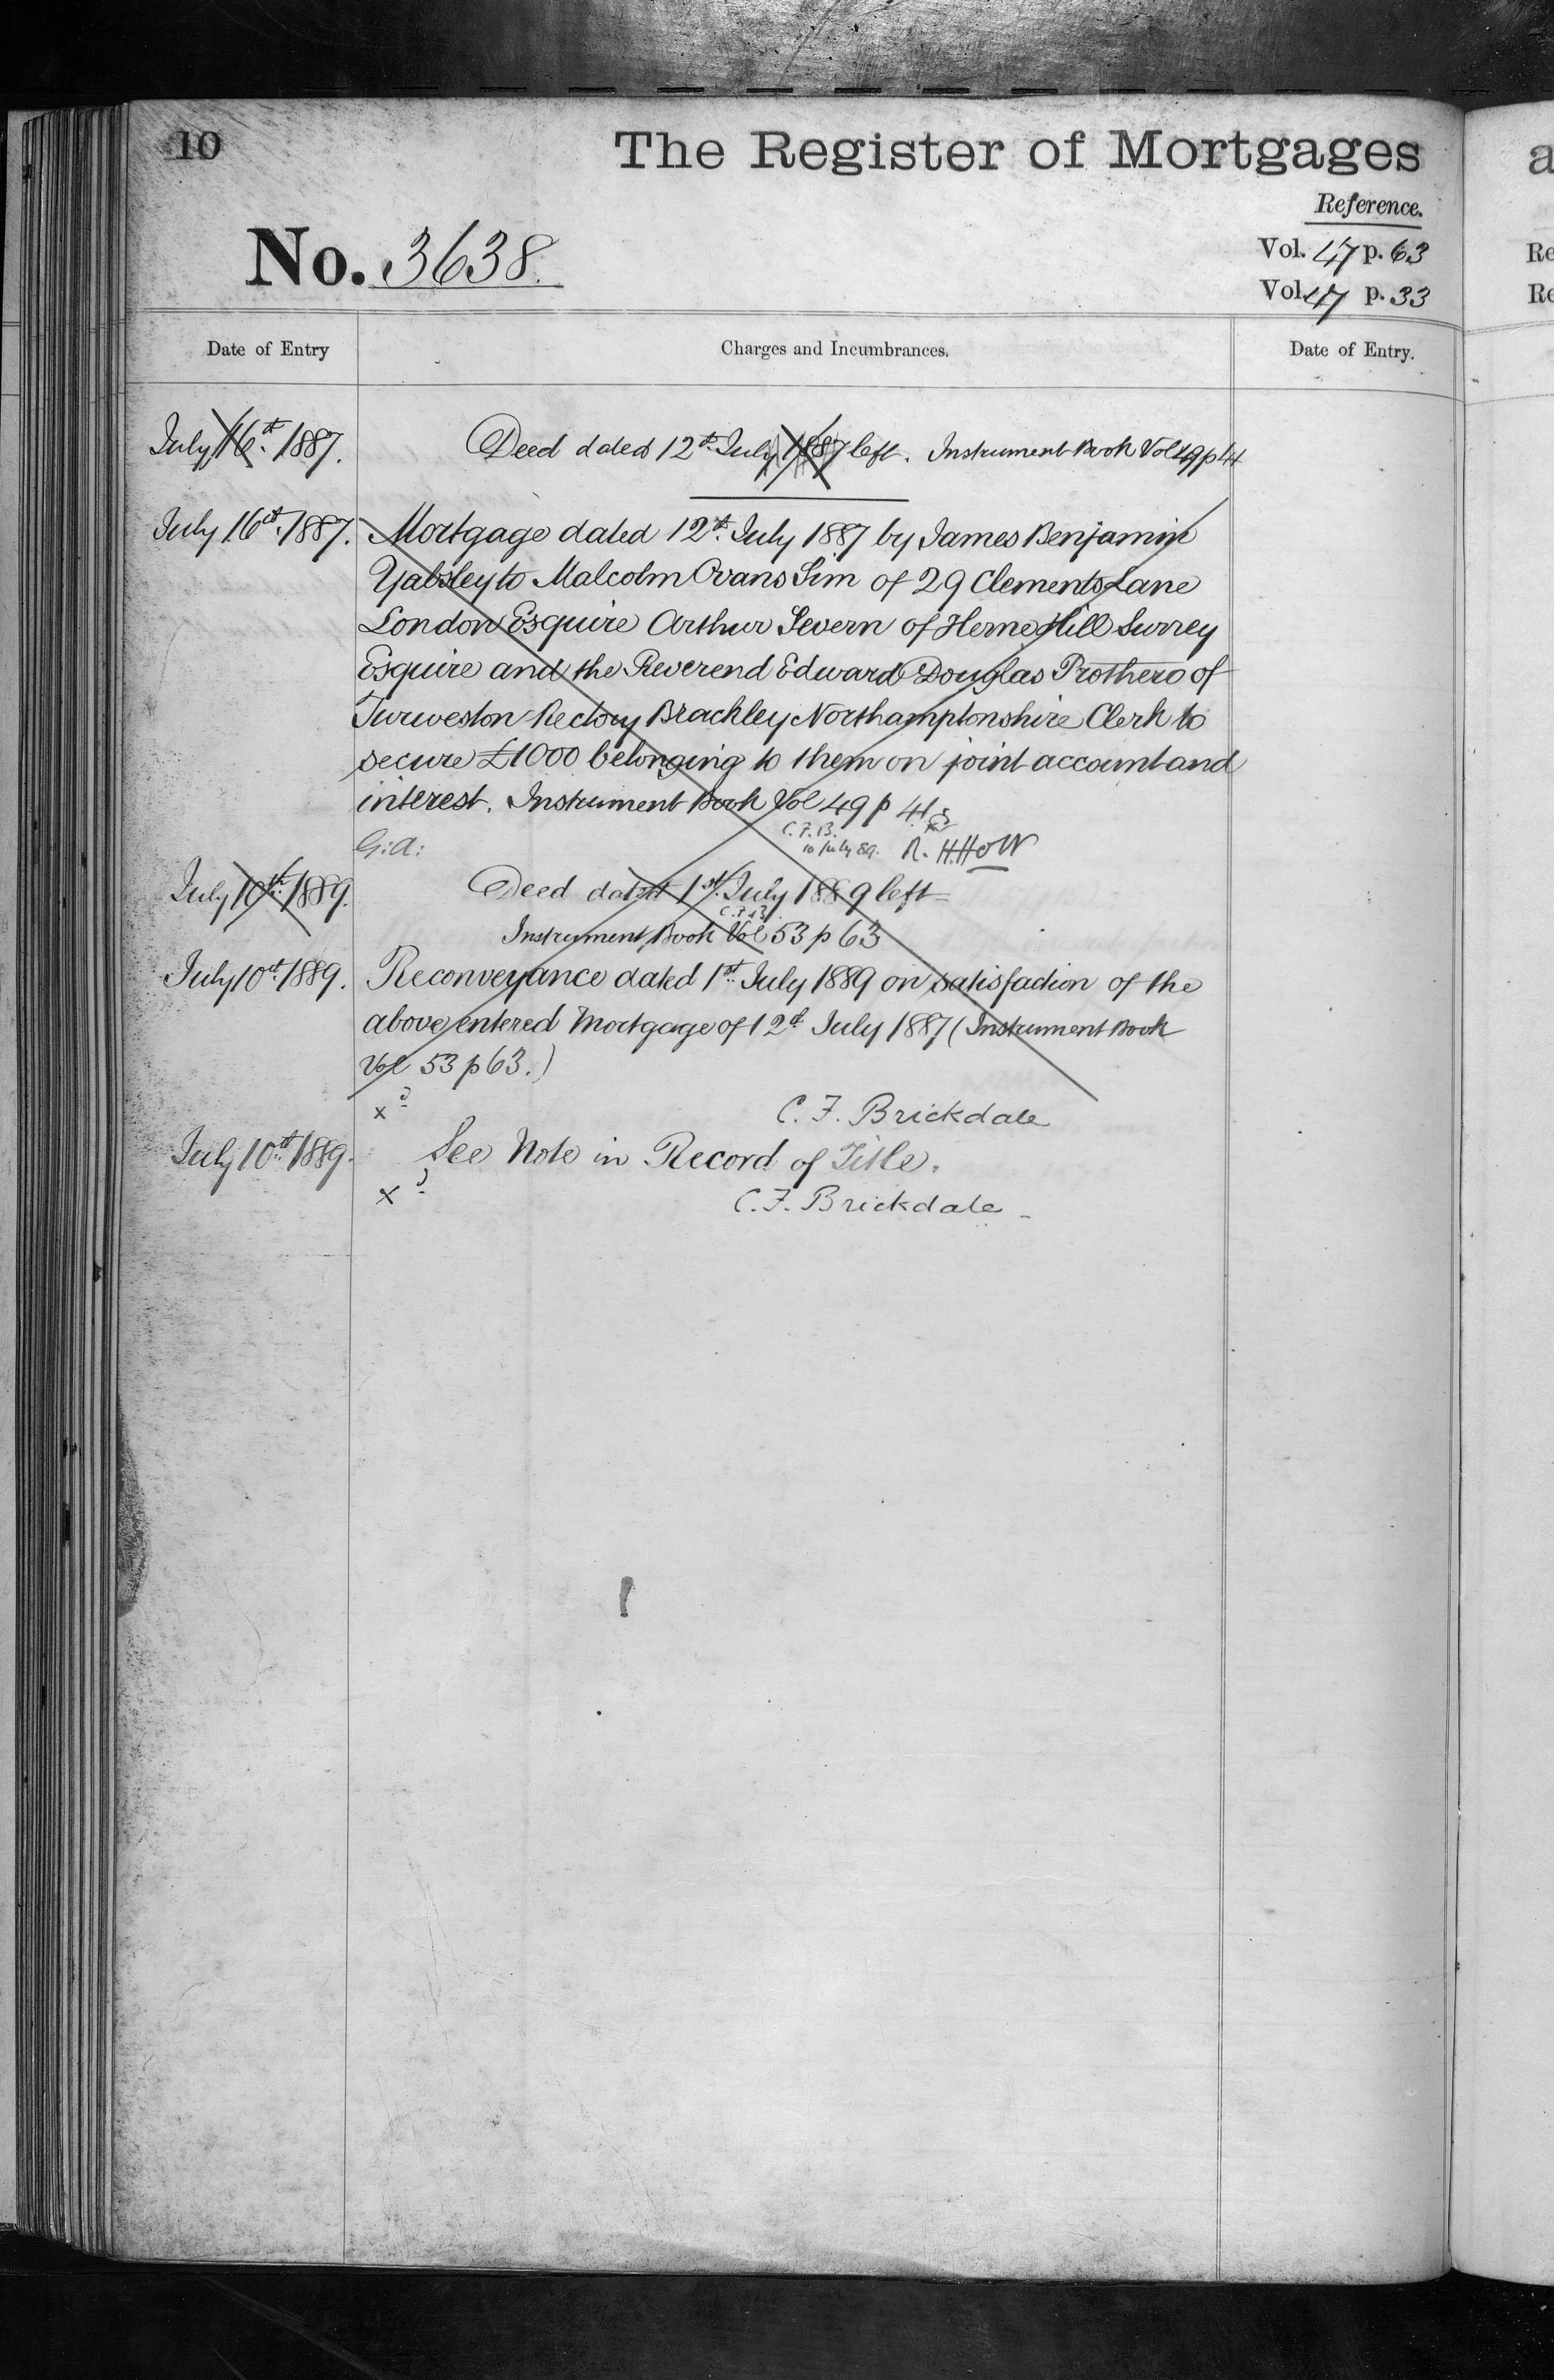 10
The Register of Mortgages
Reference.
No. 3638.
Vol. 47 p. 63
Vol. 47 p. 33
Date of Entry
Charges and Incumbrances.
Date of Entry.
July 16th. 1887.
Deed dated 12th July 1887 left. Instrument Book Vol 49 p 4
July 16th. 1887.
Mortgage dated 12th. July 1887 by James Benjamin
Yabsley to Malcolm Evans Sim of 29 Clements Lane
London Esquire Arthur Severn of Herne Hill Surrey
Esquire and the Reverend Edward Douglas Prothero of
Turweston Rectory Brackley Northamptonshire Clerk to
secure £1000 belonging to them on joint account and
interest. Instrument Book Vol 49 p 41
C.F.B.
10 July 89.
R. H. HOW
G: A:
July 10th. 1889.
Deed dated 1st. July 1889 left
C.F.B.
Instrument Book Vol 53 p 63
July 10th. 1889.
Reconveyance dated 1st. July 1889 on satisfaction of the
above entered Mortgage of 12th July 1887 (Instrument Book
Vol 53 p 63.)
x
C. F. Brickdale
July 10th. 1889.
See Note in Record of Title.
x
C. F. Brickdale
a
Re
Re